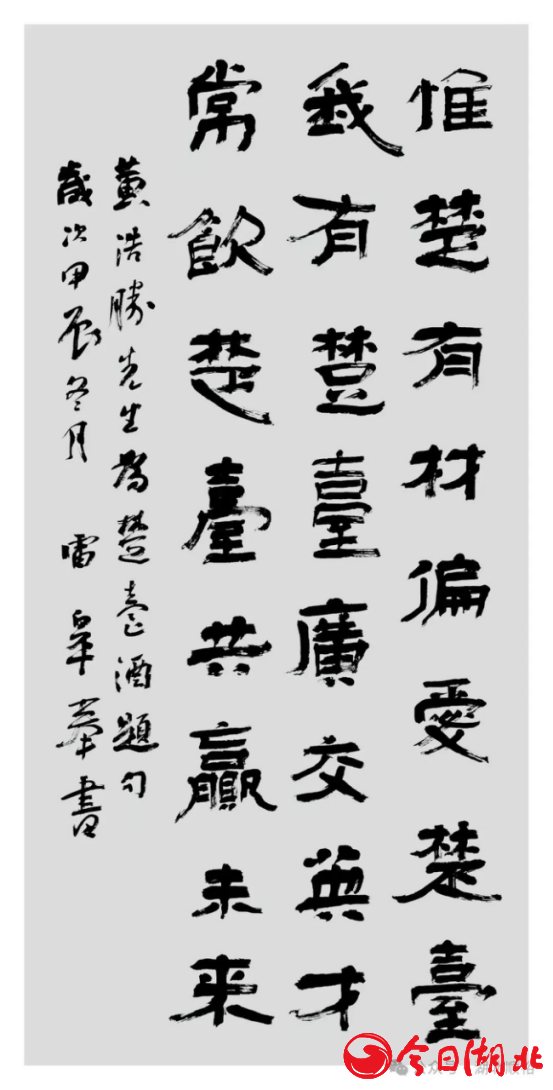 惟楚有材偏爱楚臺
我有楚臺廣交英才
常飲楚臺共贏未来
黄浩勝先生為楚臺酒題句
歲次甲辰冬月 雷皋華書
今日湖北